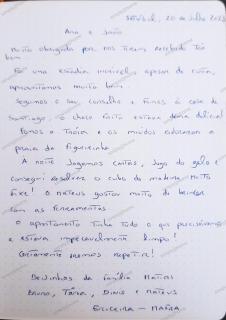 Setúbal, 20 de Julho 2023
Ana e João
Muito obrigada por nos terem recebido tão
bem.
Foi uma estadia incrível apesar de curta,
aproveitamos muito bem.
Seguimos o seu conselho e fomos à casa de
Santiago, o choco frito estava
Fomos a Tróia e os miúdos adoraram a
praia da Figueirinha.
À noite jogamos cartas, jogo do galo e
consegui resolver o cubo da madeira muito
fixe! O Mateus gostou muito de brincar
com as ferramentas.
O apartamento tinha tudo o que precisávamos
e estava impecavelmente limpo!
Certamente iremos repetir!
Beijinhos da família Matias
Bruno, Tânia, Dinis e Mateus
Ericeira - Mafra.